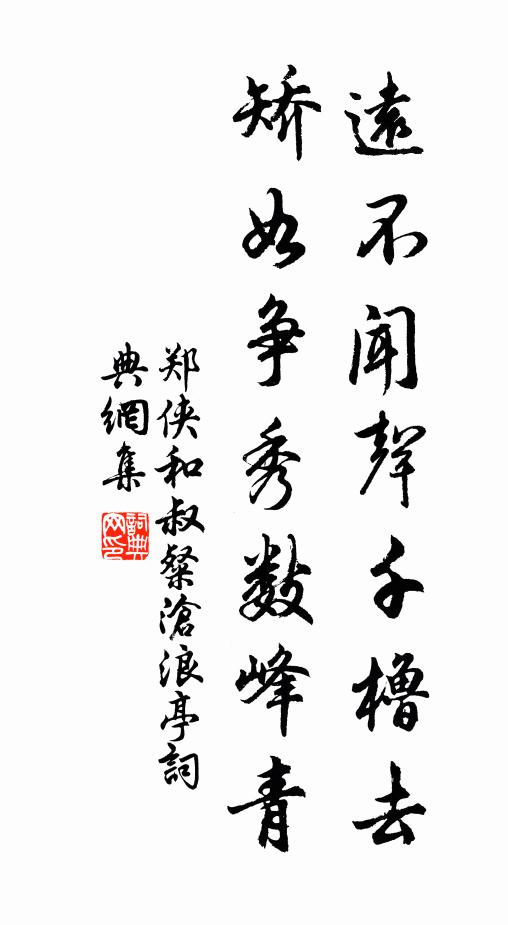 遠不聞聲千櫓去
矯如争秀數峰青
郑侠和叔粲滄浪亭詞
典網集
詞典
网印